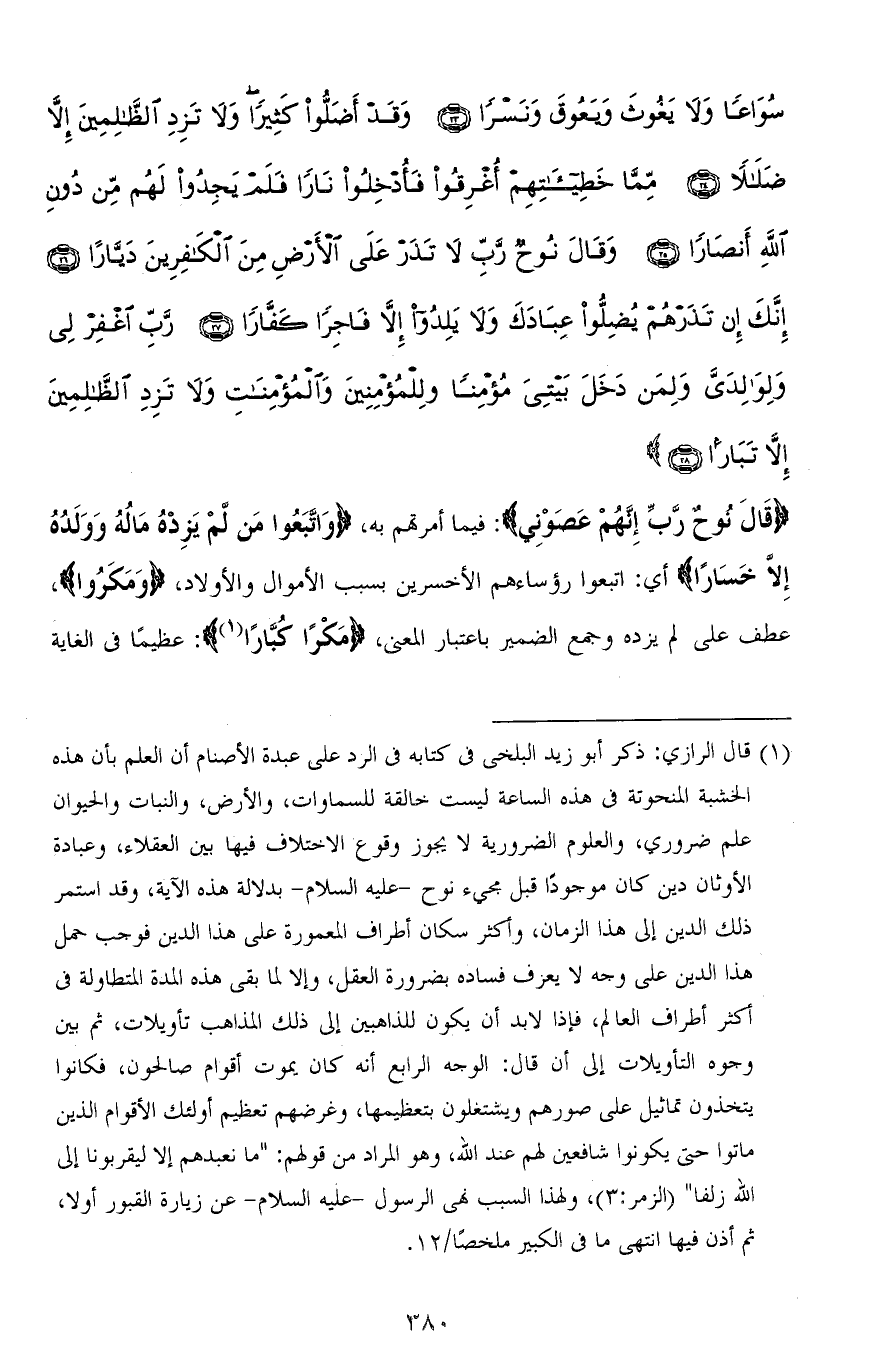 سُوَاعًا وَلَا يَغُوثَ وَيَعُوقَ وَنَسْرًا ٢٣ وَقَدْ أَضَلُّوا۟ كَثِيرًاۖ وَلَا تَزِدِ ٱلظَّٰلِمِينَ إِلَّا
ضَلَٰلًا ٢٤ مِّمَّا خَطِيٓـَٰٔتِهِمْ أُغْرِقُوا۟ فَأُدْخِلُوا۟ نَارًا فَلَمْ يَجِدُوا۟ لَهُم مِّن دُونِ
ٱللَّهِ أَنصَارًا ٢٥ وَقَالَ نُوحٌ رَّبِّ لَا تَذَرْ عَلَى ٱلْأَرْضِ مِنَ ٱلْكَٰفِرِينَ دَيَّارًا ٢٦
إِنَّكَ إِن تَذَرْهُمْ يُضِلُّوا۟ عِبَادَكَ وَلَا يَلِدُوٓا۟ إِلَّا فَاجِرًا كَفَّارًا ٢٧ رَّبِّ ٱغْفِرْ لِى
وَلِوَٰلِدَىَّ وَلِمَن دَخَلَ بَيْتِىَ مُؤْمِنًا وَلِلْمُؤْمِنِينَ وَٱلْمُؤْمِنَٰتِ وَلَا تَزِدِ ٱلظَّٰلِمِينَ
إِلَّا تَبَارًا ٢٨﴾
﴿قَالَ نُوحٌ رَبِّ إِنَّهُمْ عَصَوْنِي﴾: فيما أمرتهم به، ﴿وَاتَّبَعُوا مَن لَّمْ يَزِدْهُ مَالُهُ وَوَلَدُهُ
إِلاَّ خَسَارًا﴾ أي: اتبعوا رؤساءهم الأخسرين بسبب الأموال والأولاد، ﴿وَمَكَرُوا﴾،
عطف على لم يزده وجمع الضمير باعتبار المعنى، ﴿مَكْرًا كُبَّارًا(١)﴾: عظيمًا فى الغاية
(١) قال الرازي: ذكر أبو زيد البلخى فى كتابه فى الرد على عبدة الأصنام أن العلم بأن هذه
الخشبة المنحوتة فى هذه الساعة ليست خالقة للسماوات، والأرض، والنبات والحيوان
علم ضروري، والعلوم الضرورية لا يجوز وقوع الاختلاف فيها بين العقلاء، وعبادة
الأوثان دين كان موجودًا قبل مجيء نوح -عليه السلام- بدلالة هذه الآية، وقد استمر
ذلك الدين إلى هذا الزمان، وأكثر سكان أطراف المعمورة على هذا الدين فوجب حمل
هذا الدين على وجه لا يعرف فساده بضرورة العقل، وإلا لما بقى هذه المدة المتطاولة فى
أكثر أطراف العالم، فإذا لابد أن يكون للذاهبين إلى ذلك المذاهب تأويلات، ثم بين
وجوه التأويلات إلى أن قال: الوجه الرابع أنه كان يموت أقوام صالحون، فكانوا
يتخذون تماثيل على صورهم ويشتغلون بتعظيمها، وغرضهم تعظيم أولئك الأقوام الذين
ماتوا حتى يكونوا شافعين لهم عند الله، وهو المراد من قولهم: "ما نعبدهم إلا ليقربونا إلى
الله زلفا" (الزمر:٣)، ولهذا السبب نهى الرسول -عليه السلام- عن زيارة القبور أولا،
ثم أذن فيها انتهى ما فى الكبير ملخصًا/١٢.
٣٨٠